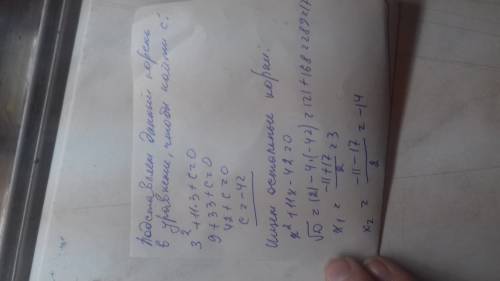 Подставляем данный корень
в уравнение, чтобы найти с:
3² + 11·3 + с = 0
9 + 33 + с = 0
42 + с = 0
с = -42
Ищем остальные корни:
x² + 11x - 42 = 0
√D = 121 - 4·(-42) = 121 + 168 = 289 = 17
x₁ = (-11 + 17)/2 = 3
x₂ = (-11 - 17)/2 = -14